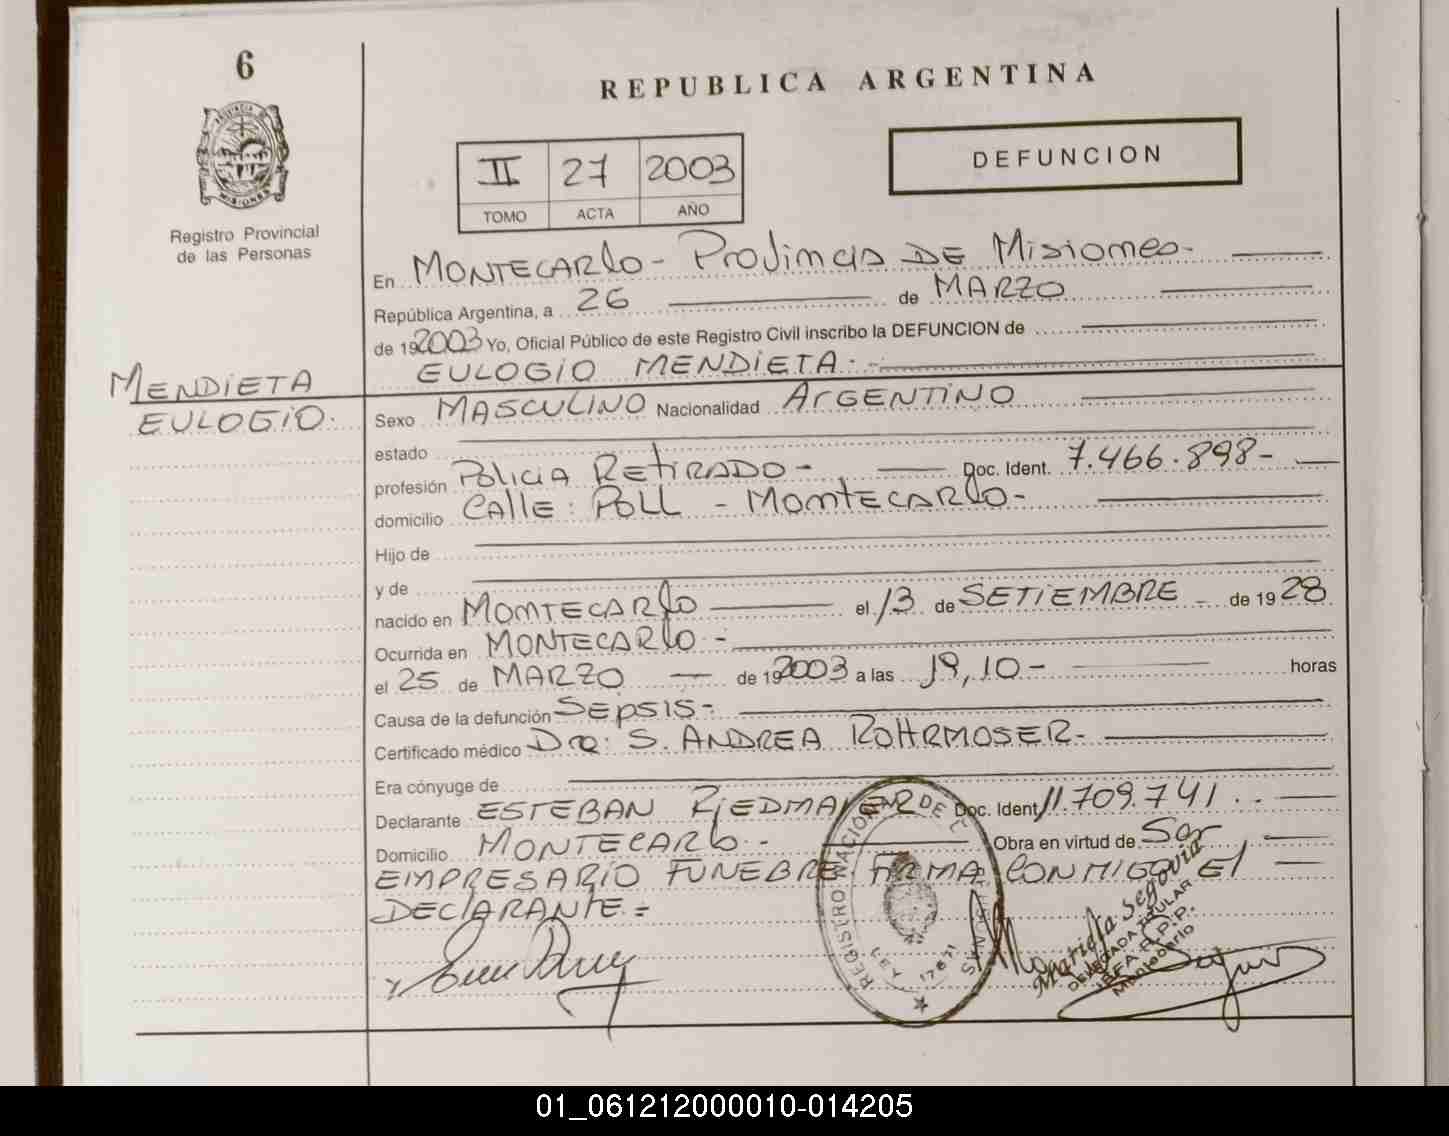 6
REPUBLICA ARGENTINA
PROVINCIA DE
MISIONES
II 27 2003
TOMO ACTA AÑO
DEFUNCION
Registro Provincial
de las Personas
En MONTECARLO - PROVINCIA DE MISIONES -
República Argentina, a 26 de MARZO
de 192003 Yo, Oficial Público de este Registro Civil inscribo la DEFUNCION de
EULOGIO MENDIETA . -
MENDIETA
EULOGIO .
Sexo MASCULINO Nacionalidad ARGENTINO
estado
profesión POLICIA RETIRADO - Doc. Ident. 7.466.898 -
domicilio CALLE : POLL - MONTECARLO -
Hijo de
y de
nacido en MONTECARLO el 13 de SETIEMBRE - de 19 28
Ocurrida en MONTECARLO . -
el 25 de MARZO de 192003 a las 19,10 - horas
Causa de la defunción SEPSIS -
Certificado médico Dra: S. ANDREA ROHRMOSER -
Era cónyuge de
Declarante ESTEBAN RIEDMAYER Doc. Ident 11.709.741 . .
Domicilio MONTECARLO - Obra en virtud de Ser
EMPRESARIO FUNEBRE FIRMA CONMIGO El
DECLARANTE . =
REGISTRO NACIONAL DE
LEY 17671
Mariela Segovia
DELEGADA TITULAR
R.P.P.
Montecarlo
01_061212000010-014205